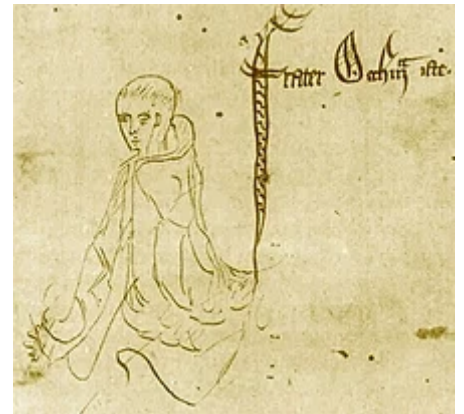 frater Occhᵃm iste.